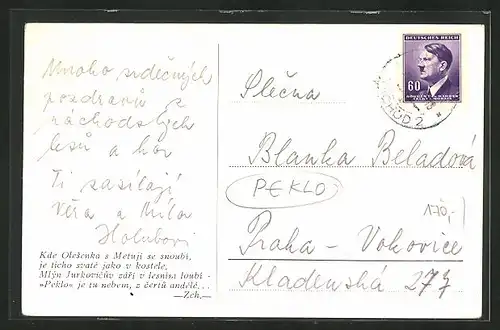 Mnoho srdečných
pozdravů z
náchodských
lesů a hor
Ti zasílají
Věra a Míla
Holubovi
Kde Olešenka s Metují se snoubí,
je ticho svaté jako v kostele,
Mlýn Jurkovičův září v lesním loubí -
»Peklo« je tu nebem, z čertů andělé...
—Zch.—
DEUTSCHES REICH
60
BÖHMEN UND MÄHREN
ČECHY A MORAVA
NÁCHOD 2
Slečna
Blanka Beladová
PEKLO
170,-
Praha - Vokovice
Kladenská 277